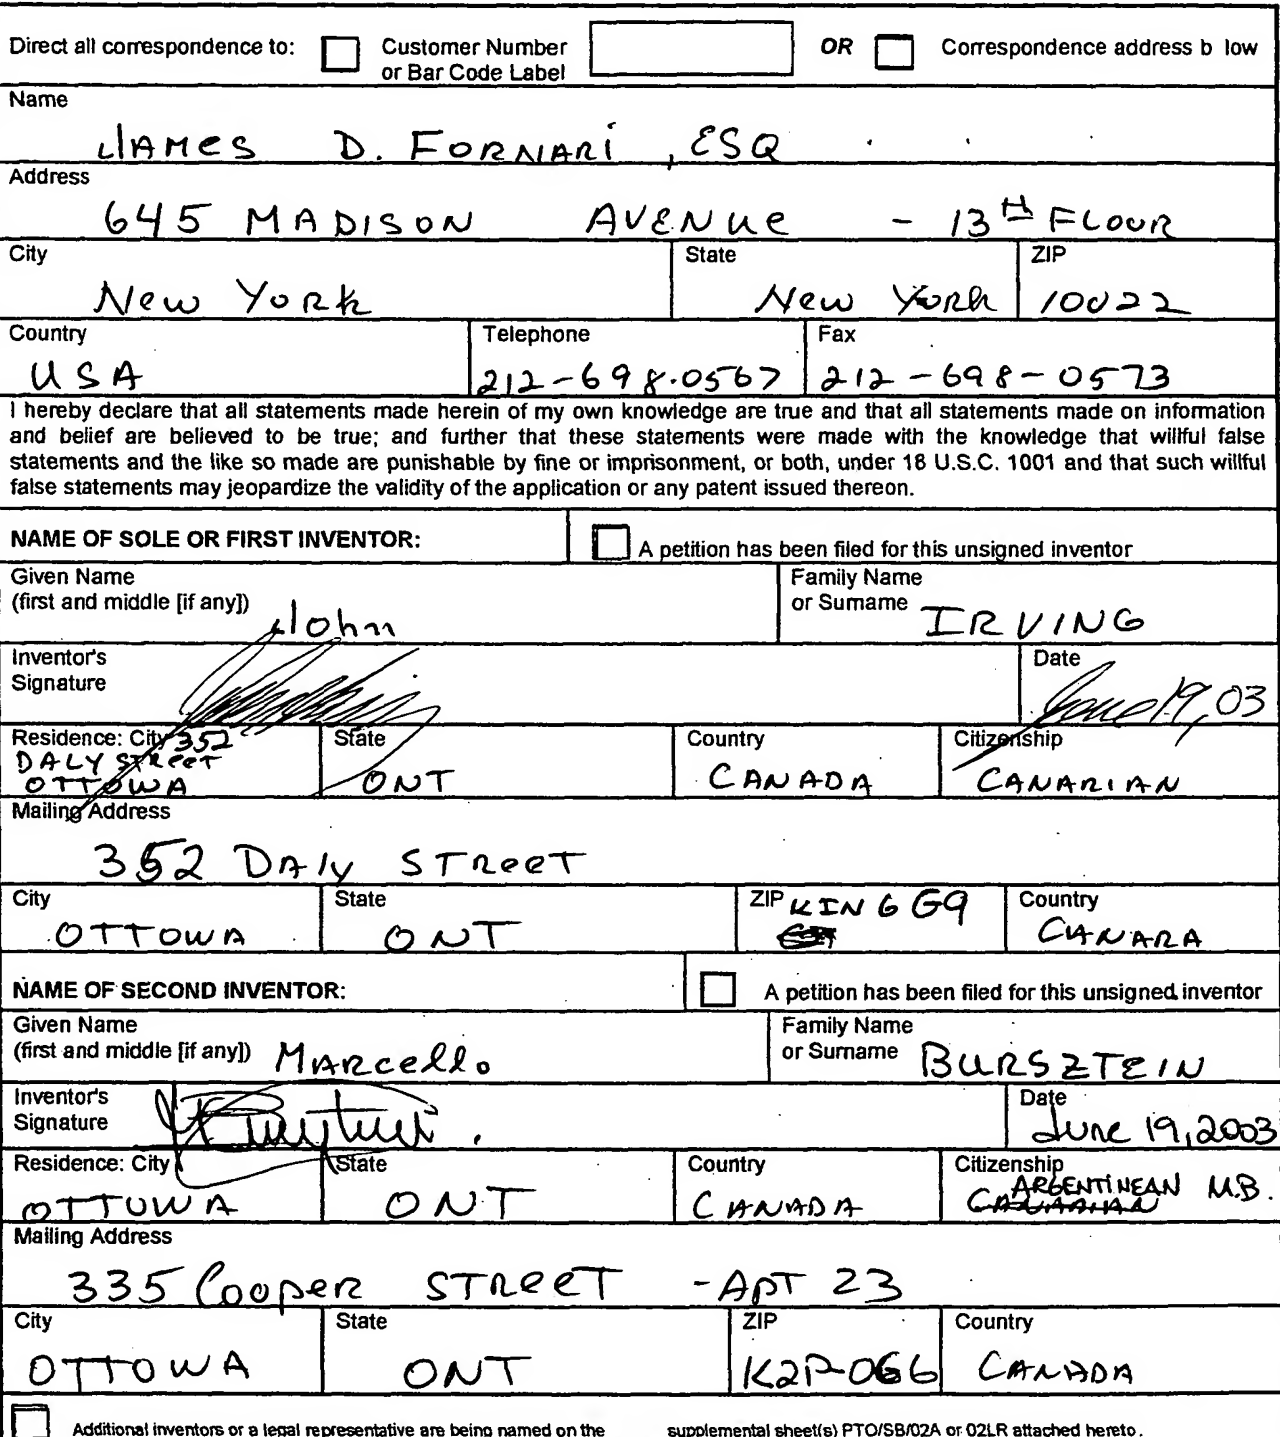 Direct all correspondence to: Customer Number or Bar Code Label OR Correspondence address b low
Name
JAMES D. FORNARI, ESQ
Address
645 MADISON AVENUE - 13th FLOOR
City State ZIP
New York New York 10022
Country Telephone Fax
USA 212-698-0567 212-698-0573
I hereby declare that all statements made herein of my own knowledge are true and that all statements made on information
and belief are believed to be true; and further that these statements were made with the knowledge that willful false
statements and the like so made are punishable by fine or imprisonment, or both, under 18 U.S.C. 1001 and that such willful
false statements may jeopardize the validity of the application or any patent issued thereon.
NAME OF SOLE OR FIRST INVENTOR: A petition has been filed for this unsigned inventor
Given Name
(first and middle [if any]) John
Family Name
or Surname IRVING
Inventor's
Signature
Date
June 19, 03
Residence: City 352
DALY STREET
OTTOWA
State
ONT
Country
CANADA
Citizenship
CANADIAN
Mailing Address
352 DALY STREET
City State ZIP Country
OTTOWA ONT K1N 6G9 CANADA
NAME OF SECOND INVENTOR: A petition has been filed for this unsigned inventor
Given Name
(first and middle [if any]) MARCELLO
Family Name
or Surname BURSZTEIN
Inventor's
Signature
Date
June 19, 2003
Residence: City State Country Citizenship
OTTOWA ONT CANADA ARGENTINEAN M.B.
CANADIAN
Mailing Address
335 Cooper STREET - APT 23
City State ZIP Country
OTTOWA ONT K2P-0G6 CANADA
Additional inventors or a legal representative are being named on the supplemental sheet(s) PTO/SB/02A or 02LR attached hereto.